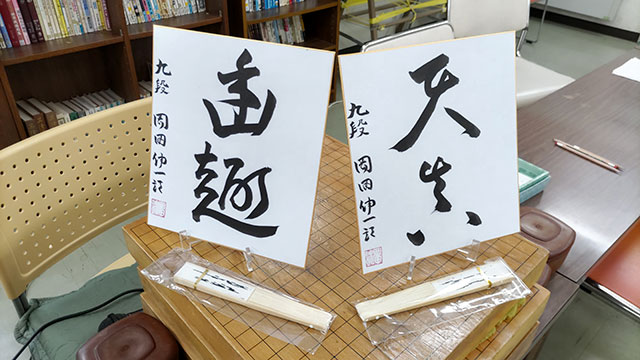 幽趣
九段 岡田伸一郎
天真
九段 岡田伸一郎